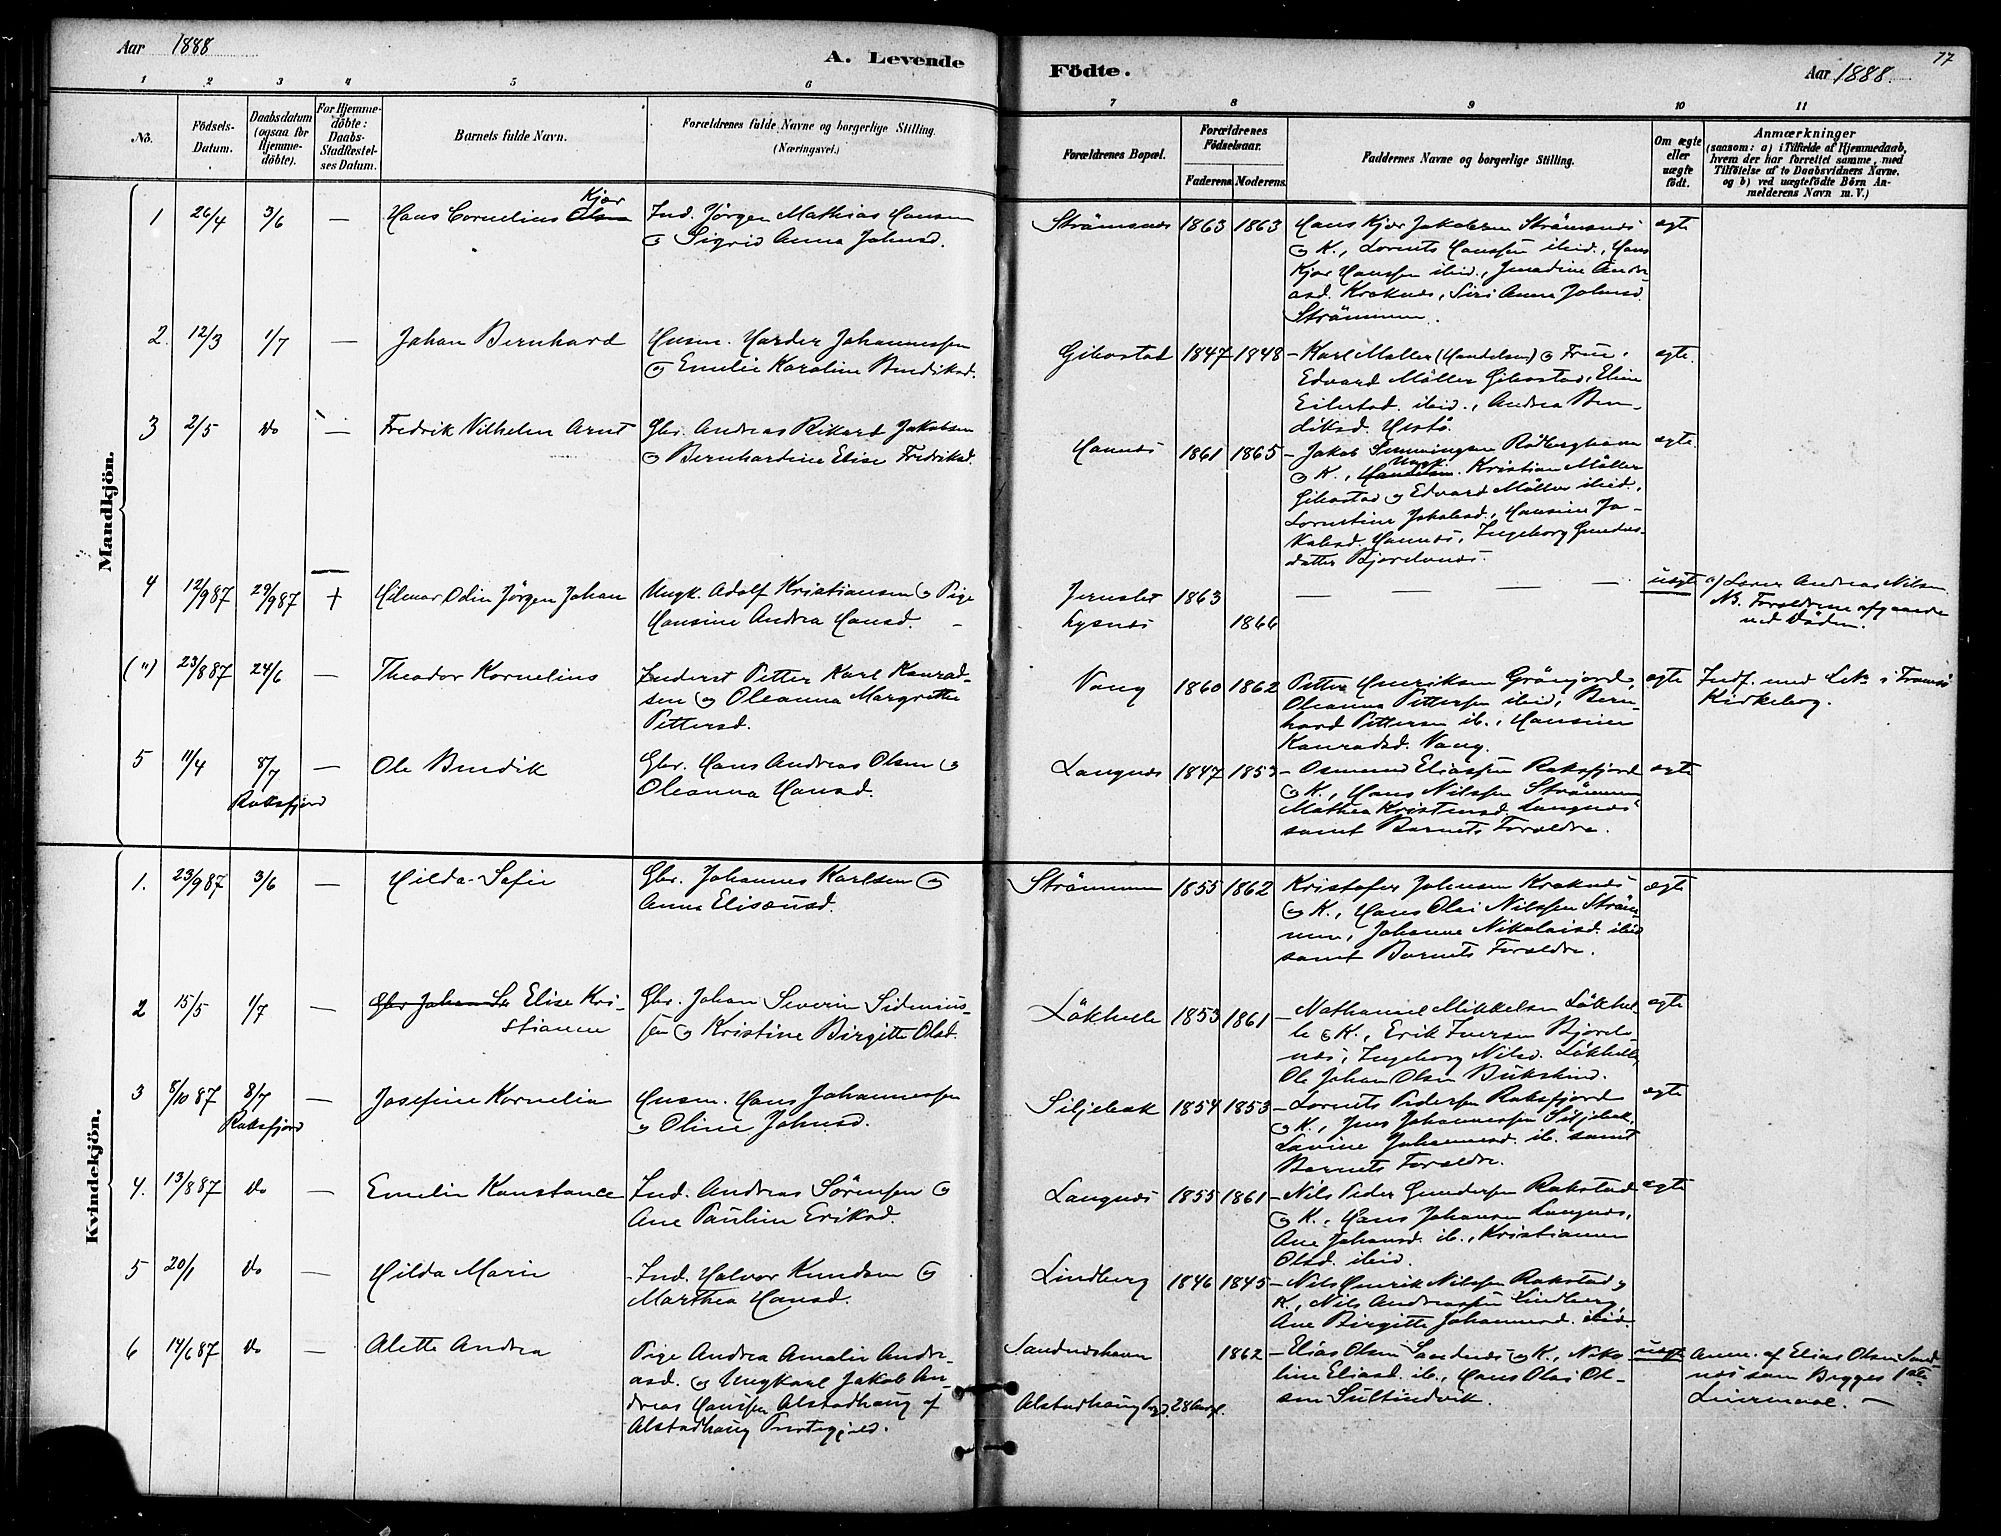 Aar 1888
A. Levende
Födte.
Aar 1888.
77
1 2 3 4 5 6
7 8 9 10 11
No.
Födsels-
Datum.
Daabsdatum
(ogsaa for
Hjemme-
döbte).
For Hjemme-
döbte:
Daabs-
Stadfæstel-
ses Datum.
Barnets fulde Navn.
Forældrenes fulde Navne og borgerlige Stilling.
(Næringsvei.)
Forældrenes Bopæl.
Forældrenes
Födselsaar.
Faderens. Moderens.
Faddernes Navne og borgerlige Stilling.
Om ægte
eller
uægte
födt.
Anmærkninger
(saasom: a) i Tilfælde af Hjemmedaab,
hvem der har forrettet samme, med
Tilföielse af to Daabsvidners Navne.
og b) ved uægtefödte Börn An-
melderens Navn m. V.)
Mandkjön.
1 26/4 3/6 — Hans Cornelius Kjær
Ind. Jörgen Mathias Hansen
og Sigrid Anna Johnsd.
Strömsnæs 1863 1863
Hans Kjær Jakobsen Strömsnæs
og K., Lorents Hanssen ibid., Hans
Kjær Hanssen ibid., Andre-
asd. Kroknæs, Siri Anna Johnsd.
Strömmen.
ægte
2. 12/3 1/7 — Johan Bernhard
Husm. Harder Johannessen
og Emelie Karoline Bendiksd.
Gibostad 1847 1848
— Karl Möller (Handelsm) og Frue,
Edvard Möller Gibostad, Eline
Eilertsd. ibid., Andrea Ben-
diksd.
ægte.
3 2/5 do — Fredrik Vilhelm Arnt
Gbr. Andreas Rikard Jakobsen
og Bernhardine Elise Fredriksd.
Hannæs 1861 1865
— Jakob Rödberghavn
og K., Ungk. Kristian Möller
Gibostad og Edvard Möller ibid.,
Lornstine Jakobsd., Hansine Ja-
kobsd. Hannæs, Ingeborg
datter Bjorelvnæs.
ægte
4 12/9 87 29/9 87 + Hilmar Odin Jörgen Johan
Ungk. Adolf Kristiansen og Pige
Hansine Andrea Hansd.
Jernslet 1863
Lysnæs 1866
uægte
a) Lærer Andreas Nilsen
NB. Forældrene afgaaende
ved Döden.
(") 23/8 87 24/6 — Theodor Kornelius
Inderst Petter Karl Konrad-
sen og Oleanna Margrethe
Pettersd.
Vang 1860 1862
Petter Henriksen Grönjord,
Oleanna Pettersen ibid, Bern-
hard Pettersen ib., Hansine
Konradsd. Vang.
ægte
Indf. med i Tromsö
Kirkebog.
5 11/4 8/7 Roksfjord — Ole Bendik
Gbr. Hans Andreas Olsen og
Oleanna Hansd.
Langnæs 1847 1853
— Osmund Eliassen Roksfjord
og K., Hans Nilssen Strömmen
Mathea Kristensd. Langnæs
samt Barnets Forældre.
ægte
Kvindekjön.
1. 23/9 87 3/6 — Hilda Sofie
Gbr. Johannes Karlsen og
Anna Elisæusd.
Strömmen 1855 1862
Kristofer Johnsen Kroknæs
og K., Hans Olai Nilssen Ström-
men, Johanna Nikolaisd. ibid
samt Barnets Forældre.
ægte
2 15/5 1/7 — Gbr Johan Se Elise Kri-
stianne
Gbr. Johan Severin Sidenius-
sen og Kristine Birgitte Olsd.
Lökhelle 1853 1861
— Nathanael Mikkelsen Lökhel-
le og K., Erik Iversen Bjorelv-
næs, Ingeborg Nilsd. Lökhelle,
Ole Johan Olsen Bukskind.
ægte
3 8/10 87 8/7 Roksfjord — Josefine Kornelia
Husm. Hans Johannessen
og Oline Johnsd.
Siljebak 1854 1853
— Lorents Pedersen Roksfjord
og K., Jens Johannessen Siljebak,
Lovine Johannesd. ib. samt
Barnets Forældre.
ægte
4. 13/8 87 do — Emelie Konstance
Ind. Andreas Sörensen og
Ane Pauline Eriksd.
Langnæs 1855 1861
— Nils Peder Gundersen Rokstad
og K., Hans Johansen Langnæs,
Ane Johansd. ib., Kristianne
Olsd. ibid.
ægte
5 20/1 do — Hilda Marie
Ind. Halvor Knudsen og
Marthea Hansd.
Lindberg 1846 1845
— Nils Henrik Nilssen Rokstad og
K., Nils Andreassen Lindberg
Ane Birgitte Johannesd. ibid.
6 14/6 87 do — Alette Andrea
Pige Andrea Amalie Andre-
asd. og Ungkarl Jakob An-
dreas Hanssen Alstadhaug af
Alstadhaug Prestegjeld.
Sandnæshavn 1862
Alstadhaug Prgj. 28 Aar gl.
— Elias Olsen Sandnæs og K., Niko-
line Eliasd. ib., Hans Olai Ol-
sen Sultindvik.
uægte
Anm. af Elias Olsen Sand-
næs som Begges 1ste
Leiermaal. —